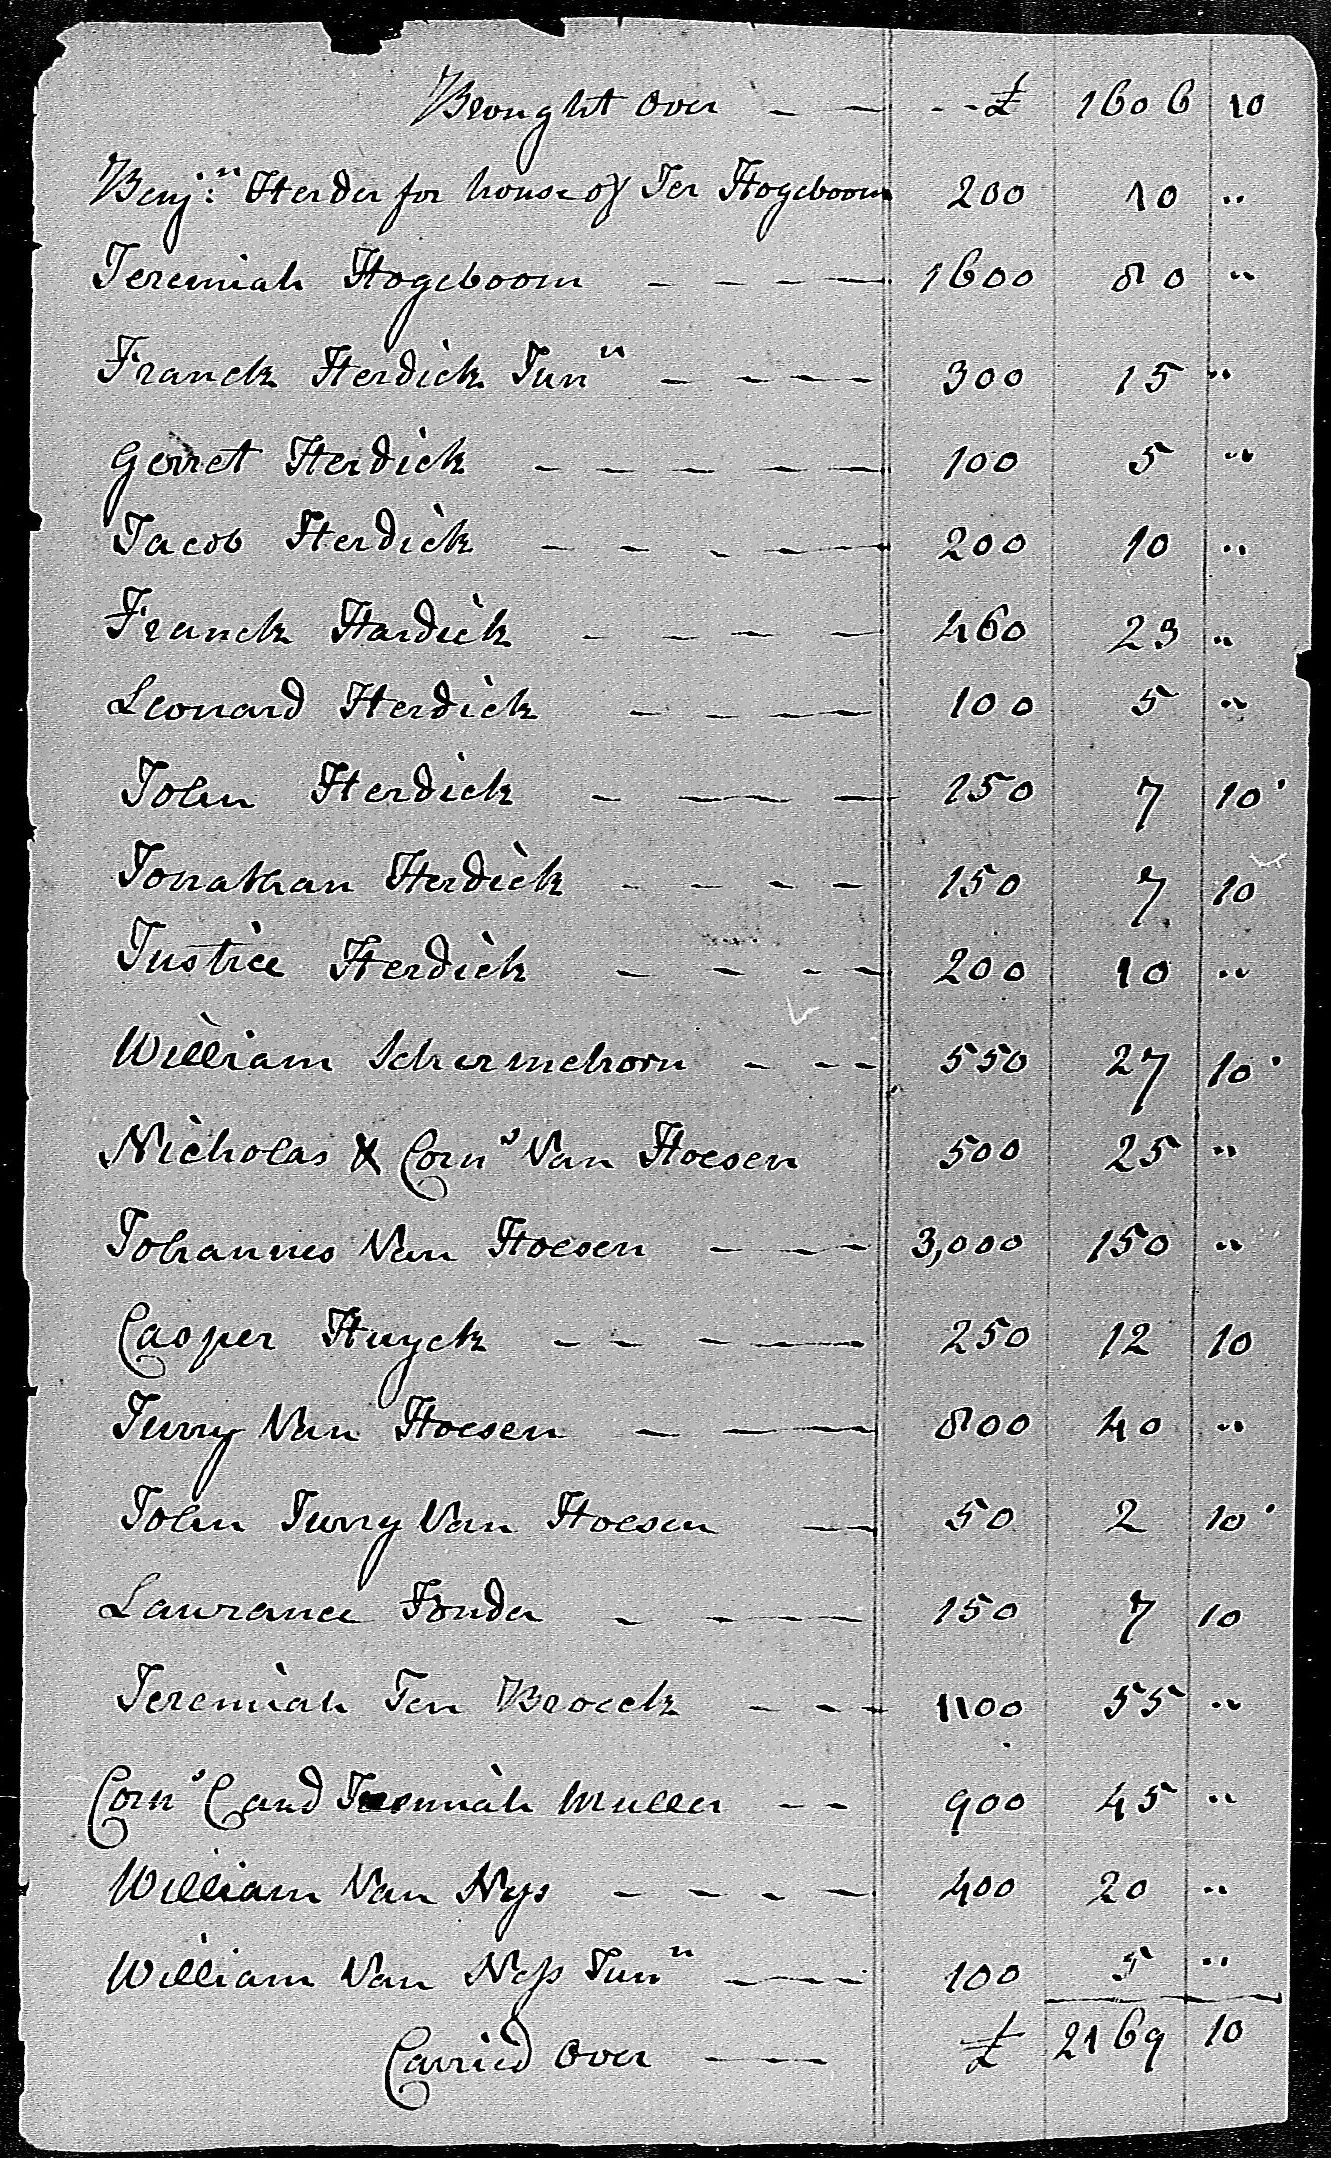 Brought over - - - - £ 1606 10
Benj:n Herder for house of Jer Hogeboom 200 10 "
Jeremiah Hogeboom - - - - 1600 80 "
Franck Herdick Junr - - - - 300 15 "
Gerret Herdick - - - - - 100 5 "
Jacob Herdick - - - - 200 10 "
Franck Hardick - - - - 460 23 "
Leonard Herdick - - - - 100 5 "
John Herdick - - - - 150 7 10
Jonathan Herdick - - - - 150 7 10
Justice Herdick - - - - 200 10 "
William Schermehorn - - - 550 27 10
Nicholas & Corns Van Hoesen 500 25 "
Johannes Van Hoesen - - - 3,000 150 "
Casper Huyck - - - - 250 12 10
Jurry Van Hoesen - - - 800 40 "
John Jurry Van Hoesen - - 50 2 10
Lawrance Fonda - - - - 150 7 10
Jeremiah Ten Broeck - - - 1100 55 "
Corns C and Jeremiah Muller - - 900 45 "
William Van Nys - - - - 400 20 "
William Van Ness Junr - - - 100 5 "
Carried over - - - £ 2169 10